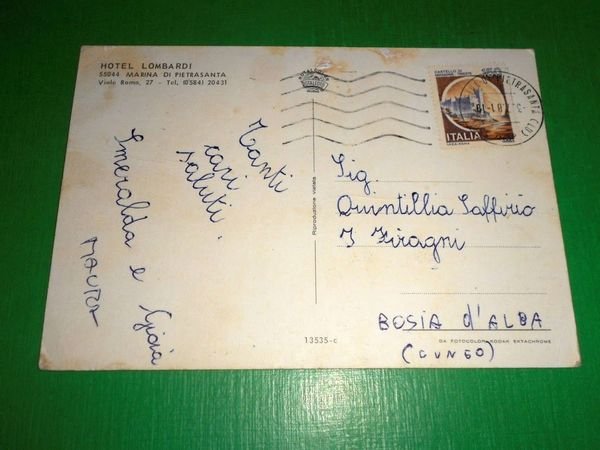 HOTEL LOMBARDI
55044 MARINA DI PIETRASANTA
Viale Roma, 27 - Tel. (0584) 20431
Tanti
cari
saluti.
Smeralda e Gioia
MAURA
Riproduzione vietata
13535-c
CASTELLO DI
ITALIA
PIETRASANTA (LU)
Sig.
Quintillia Saffirio
I Firagni
BOSIA d'ALBA
(CUNEO)
DA FOTOCOLOR KODAK EKTACHROME